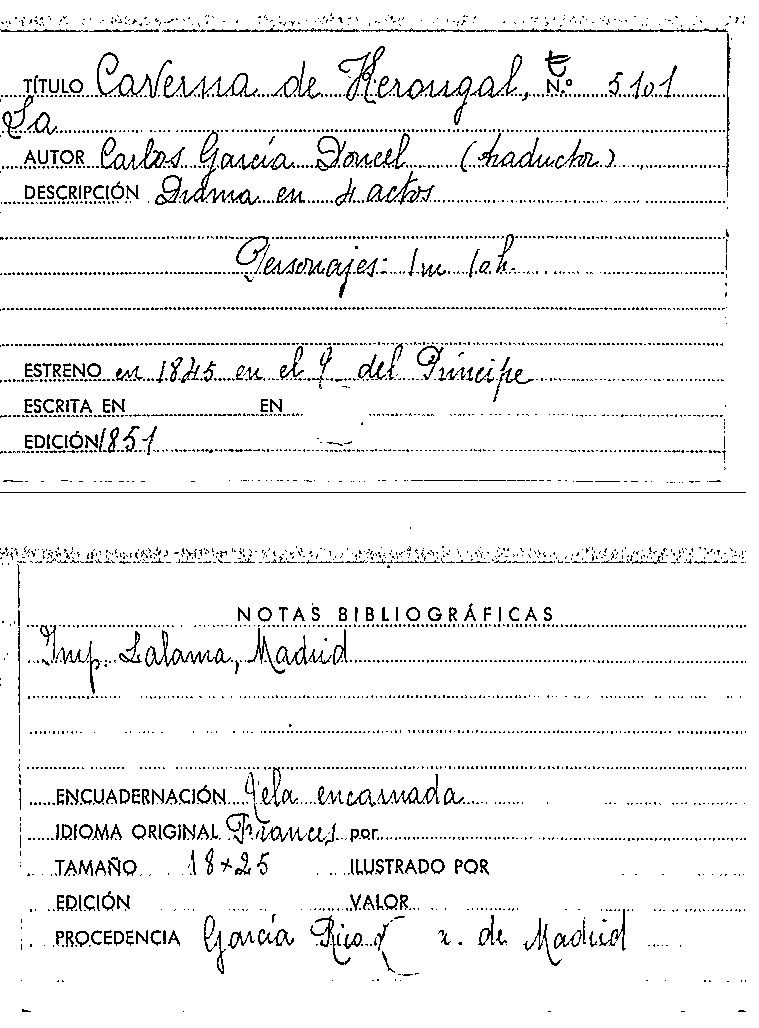 TÍTULO Caverna de Kerougal, t N.º 5101
La
AUTOR Carlos García Doncel (traductor)
DESCRIPCIÓN Drama en 4 actos
Personajes: 1m 10h.
ESTRENO en 1845 en el T. del Príncipe
ESCRITA EN EN
EDICIÓN 1851
NOTAS BIBLIOGRÁFICAS
Imp. Lalama, Madrid
ENCUADERNACIÓN Tela encarnada
IDIOMA ORIGINAL Frances por
TAMAÑO 18x25 ILUSTRADO POR
EDICIÓN VALOR
PROCEDENCIA García Rico y de Madrid